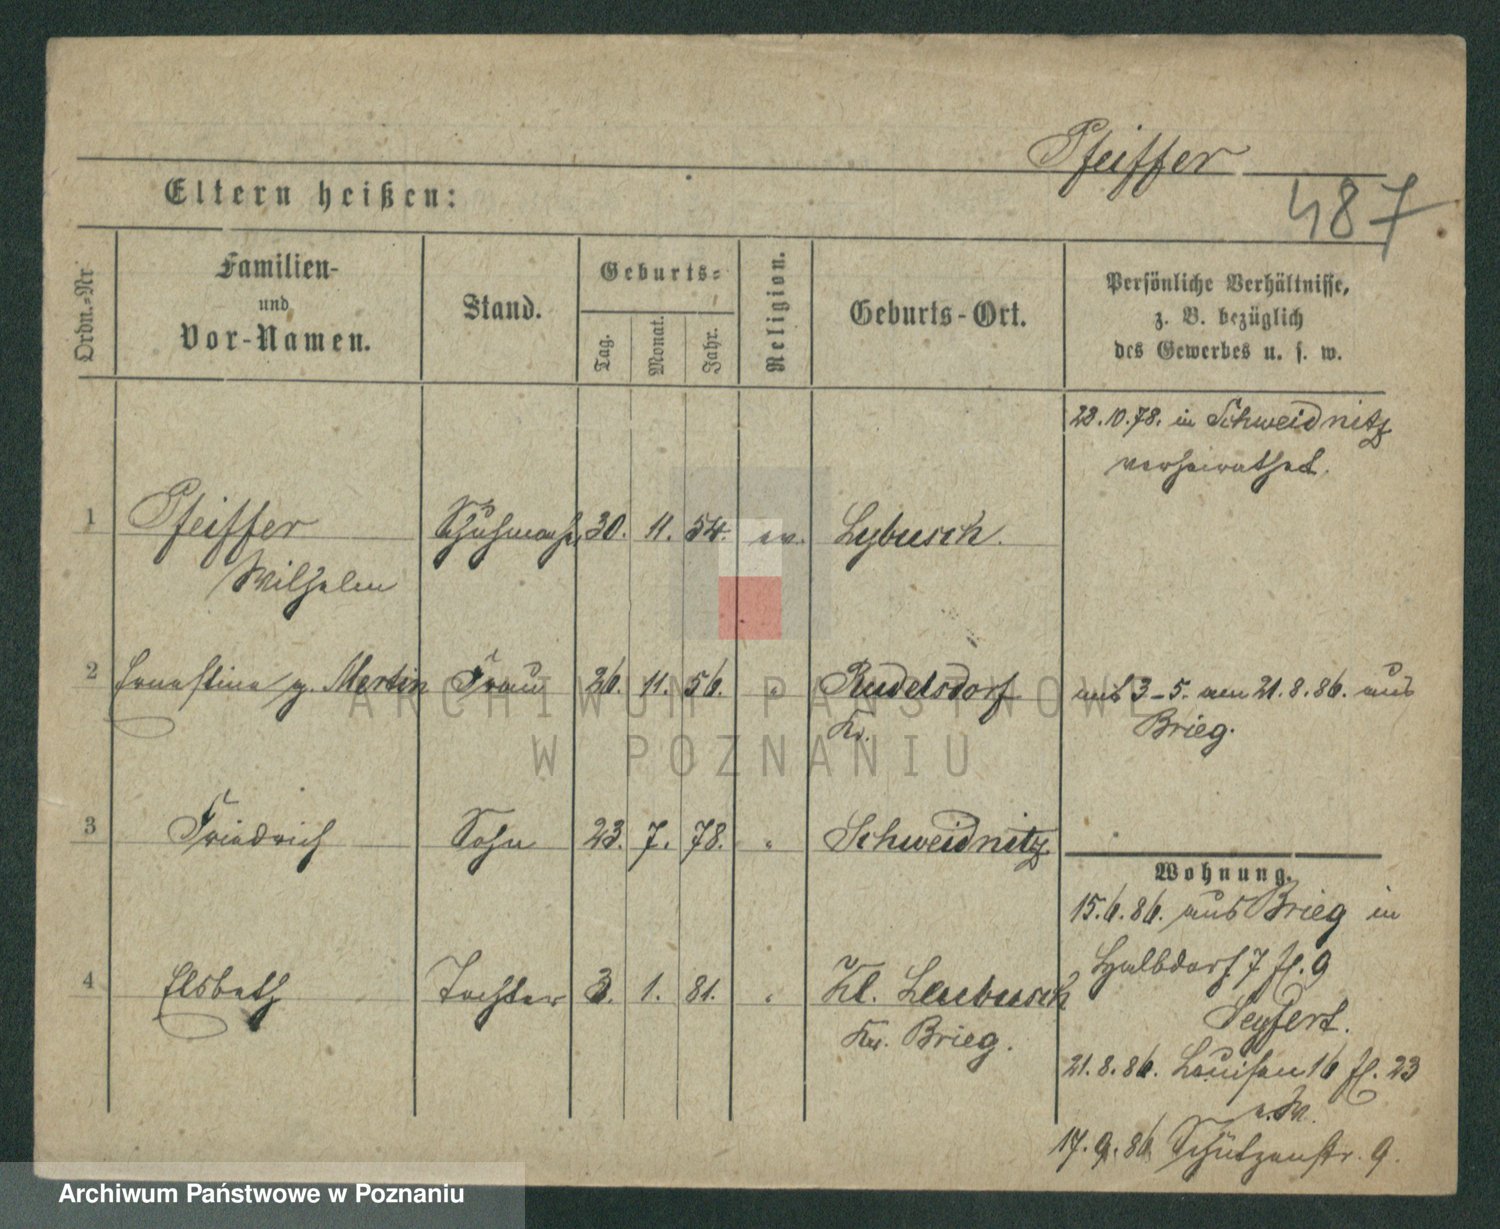 Pfeiffer
487
Eltern heißen:
Ordn.-Nr
Familien-
und
Vor-Namen.
Stand.
Geburts-
Tag.
Monat.
Jahr.
Religion.
Geburts-Ort.
Persönliche Verhältnisse,
z. B. bezüglich
des Gewerbes u. s. w.
23.10.78. in Schweidnitz
verheirathet.
1 Pfeiffer Schuhmach. 30. 11. 54. ev. Lybusch.
Wilhelm
2 Ernestine g. Mertin Frau 26. 11. 56. " Rudelsdorf
Kr.
3-5. am 21.8.86. aus
Brieg.
3 Friedrich Sohn 23. 7. 78. " Schweidnitz
Wohnung.
15.6.86. aus Brieg in
Halbdorf 7 fl. 9
Seyfert.
4 Elsbeth Tochter 3. 1. 81. " Kl. Leubusch
Kr. Brieg.
21.8.86. Louisen 16 fl. 23
17.9.86 Schützenstr. 9.
ARCHIWUM PAŃSTWOWE
W POZNANIU
Archiwum Państwowe w Poznaniu